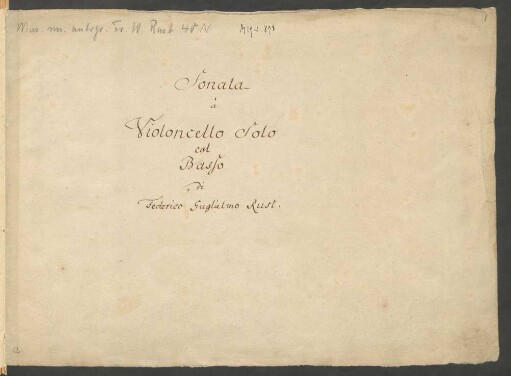 Mus. ms. autogr. Fr. W. Rust 48 N
Sonata
à
Violoncello Solo
col
Basso
di
Federico Guglielmo Rust.